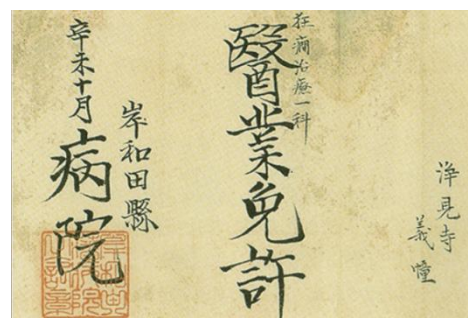 浄見寺
義憧
狂癇治療一科
醫業免許
岸和田縣
病院
辛未十月